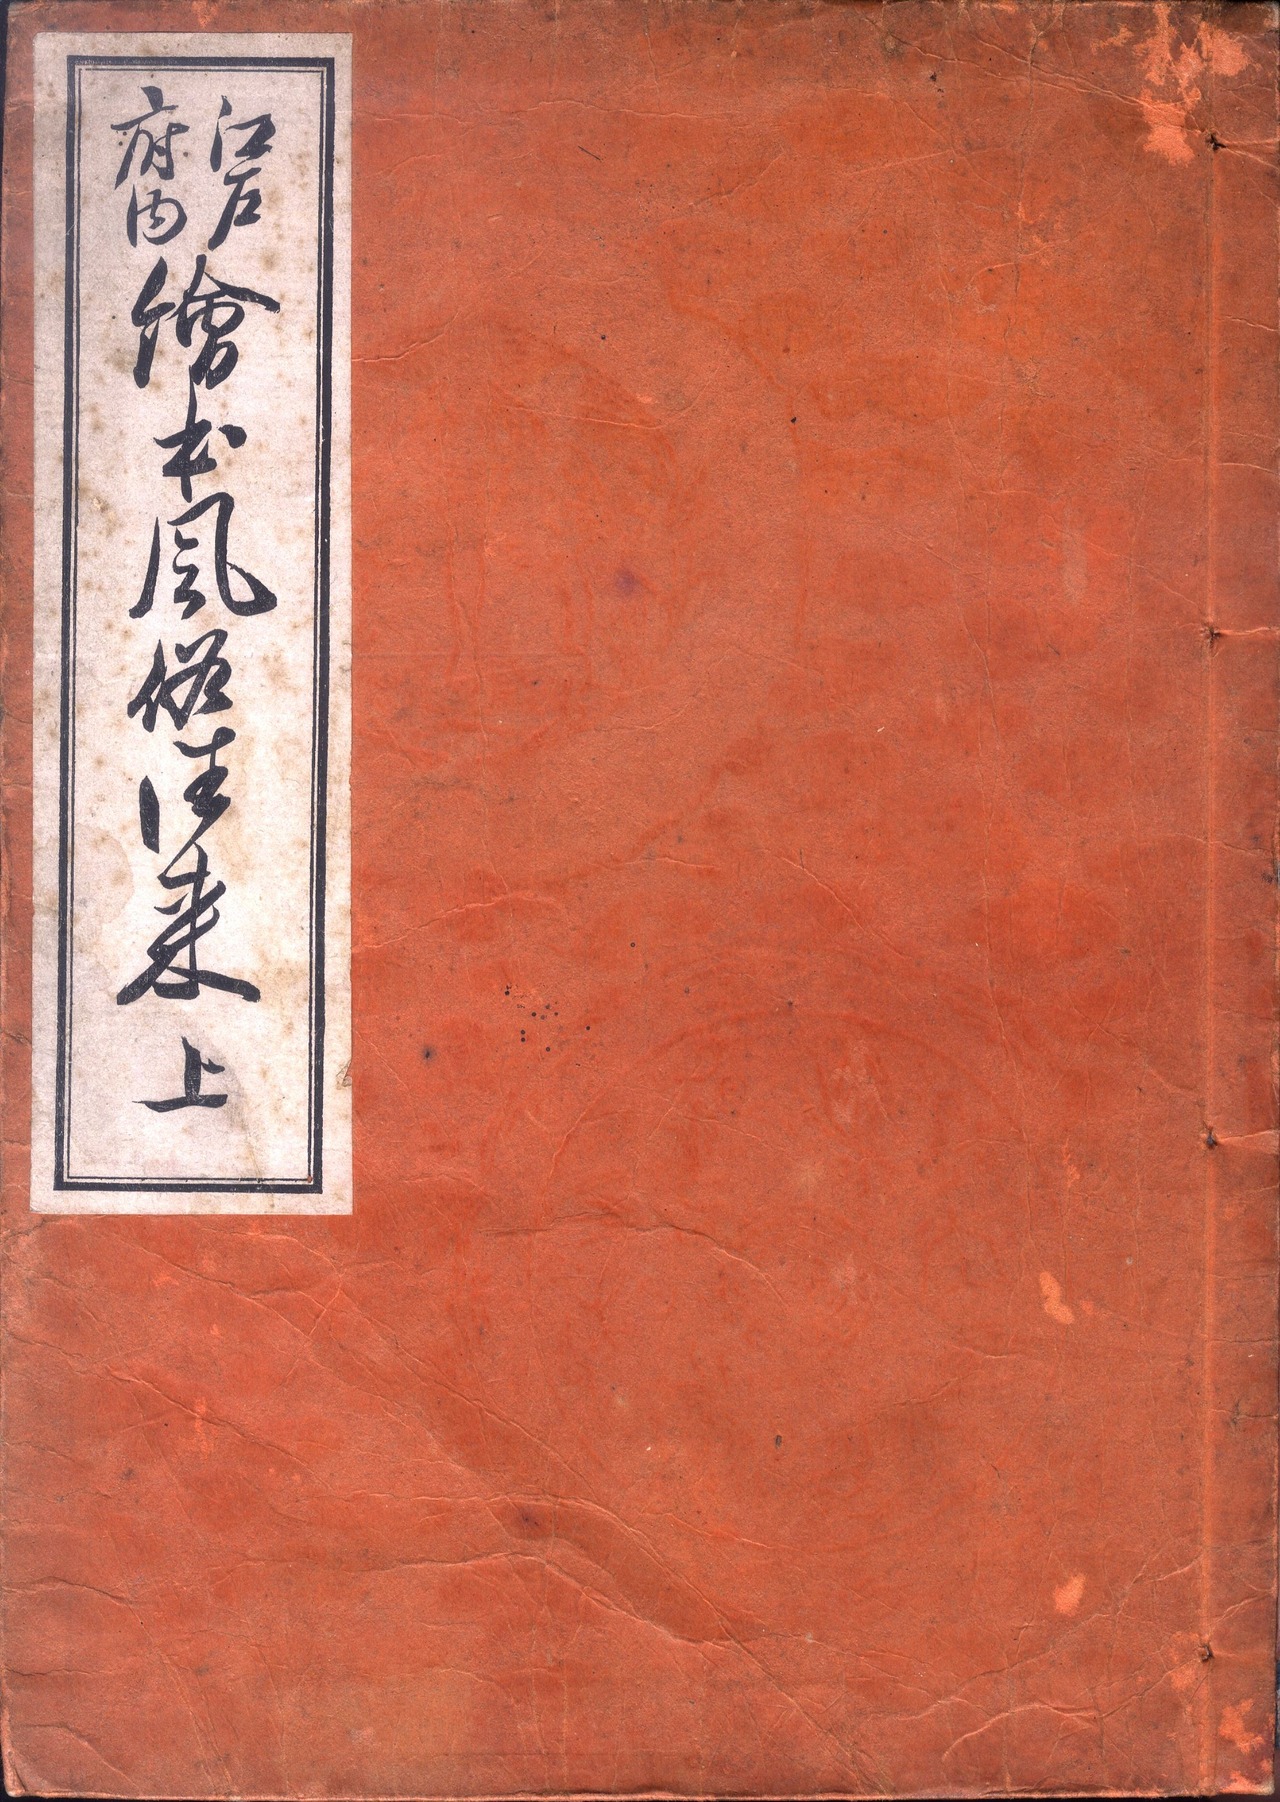 江戸
府内
繪本風俗往来 上